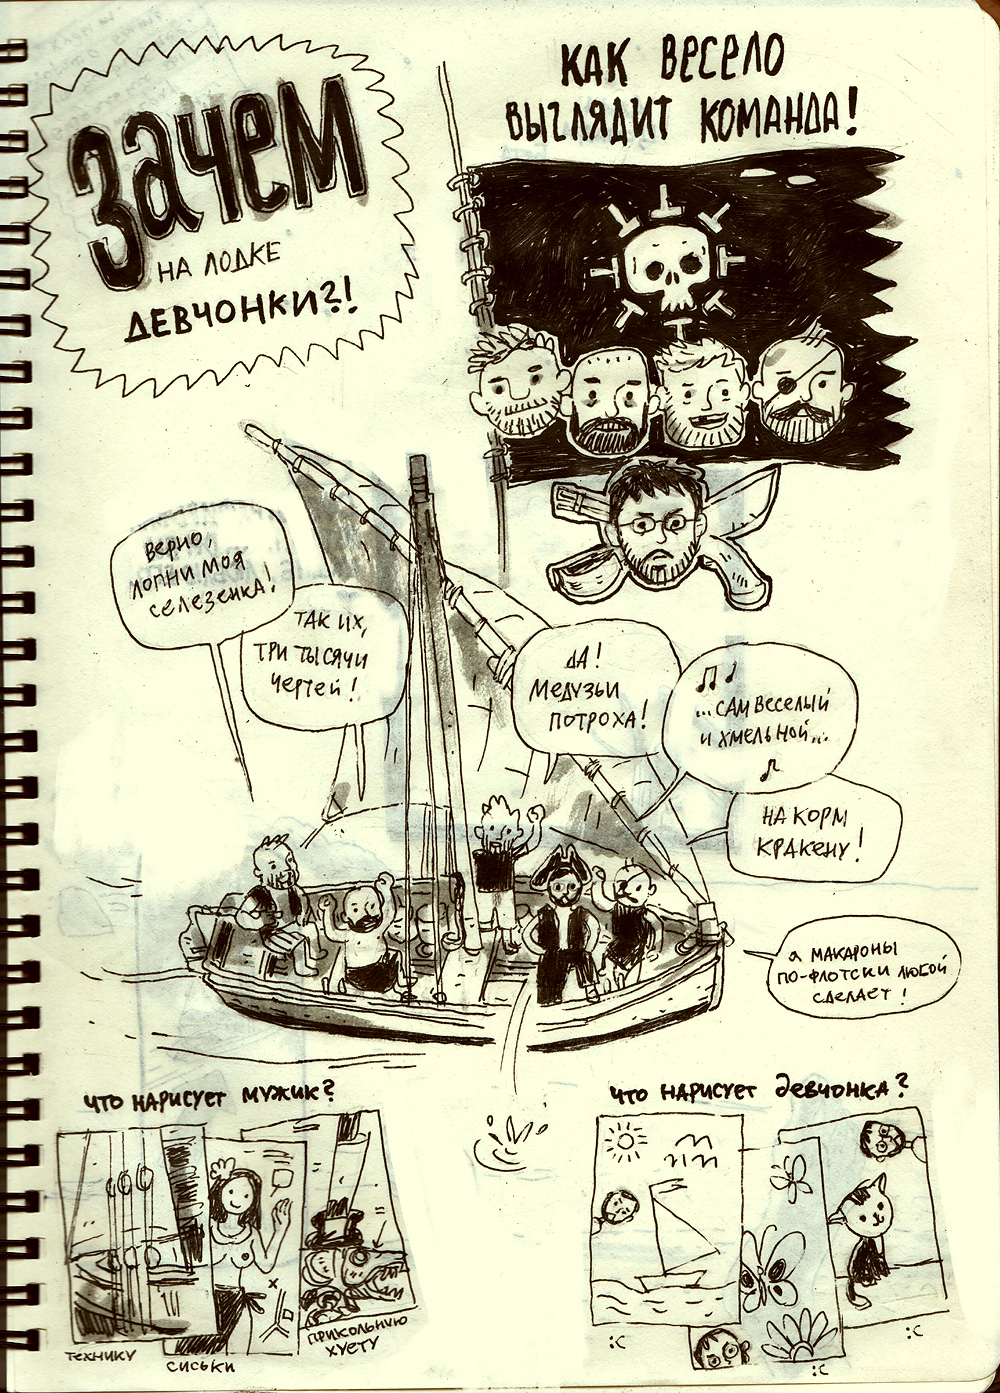 зачем
НА ЛОДКЕ
ДЕВЧОНКИ?!
КАК ВЕСЕЛО
ВЫГЛЯДИТ КОМАНДА!
ВЕРНО,
ЛОПНИ МОЯ
СЕЛЕЗЕНКА!
ТАК ИХ,
ТРИ ТЫСЯЧИ
ЧЕРТЕЙ!
ДА!
МЕДУЗЬИ
ПОТРОХА!
...САМ ВЕСЕЛЫЙ
И ХМЕЛЬНОЙ...
НА КОРМ
КРАКЕНУ!
а МАКАРОНЫ
ПО-ФЛОТСКИ ЛЮБОЙ
СДЕЛАЕТ!
ЧТО НАРИСУЕТ МУЖИК?
ЧТО НАРИСУЕТ ДЕВЧОНКА?
ТЕХНИКУ
СИСЬКИ
ПРИКОЛЬНУЮ
ХУЕТУ
:С
:С
:С